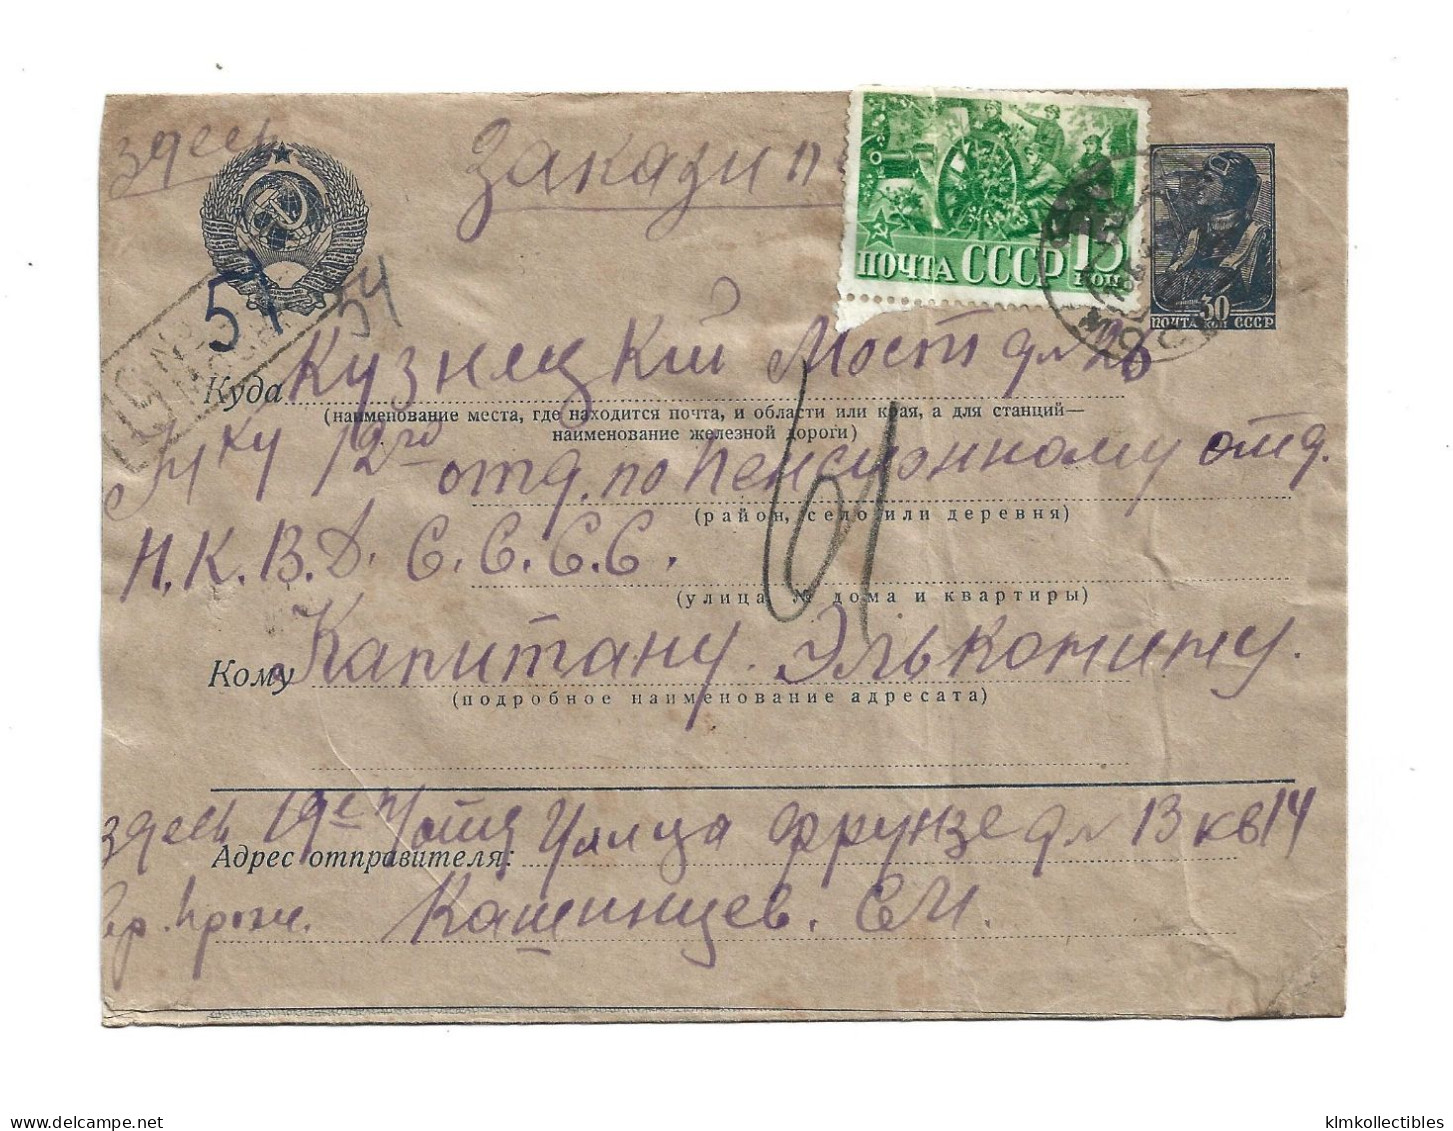 здесь
Заказн
ПОЧТА СССР 15 коп.
30
ПОЧТА КОП СССР
МОСК
57
54
Куда Кузнецкий Мост дм 2б
(наименование места, где находится почта, и области или края, а для станций—
наименование железной дороги)
Н ку 12го отд. по Пенсионному отд.
(район, село или деревня)
Н.К.В.Д. С.С.С.С.
61
(улица, № дома и квартиры)
Кому Капитану. Эльконину.
(подробное наименование адресата)
здесь 19 Улица Фрунзе дм 13 кв 14
Адрес отправителя:
Кашинцев. ЕИ.
delcampe.net
klmkollectibles